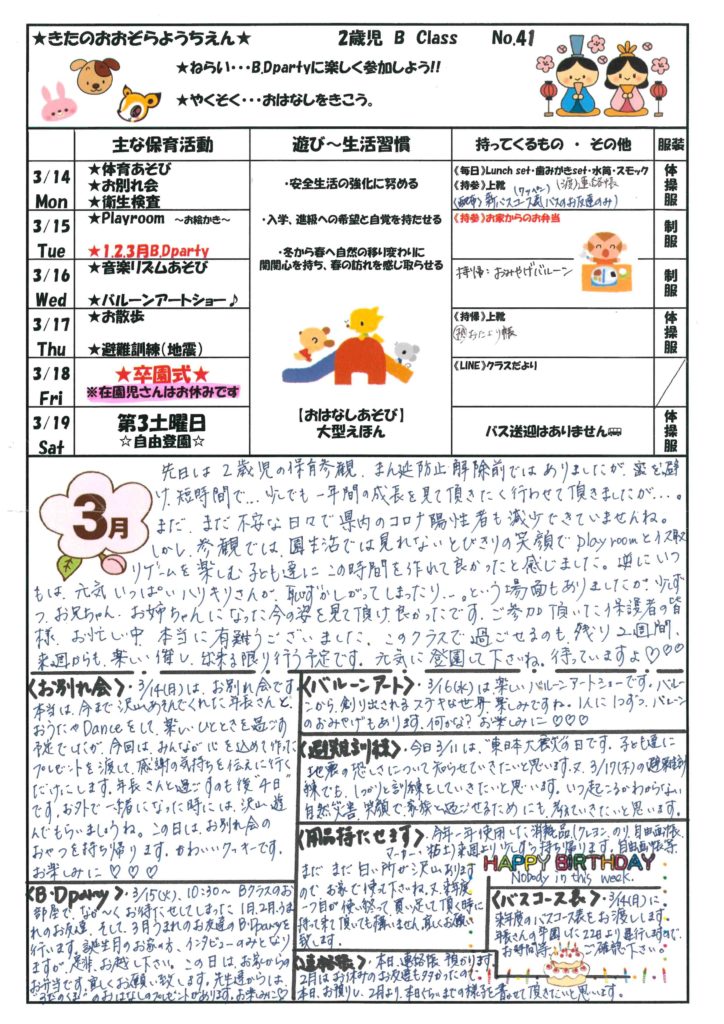 ★きたのおおぞらようちえん★ 2歳児 B Class No.41
★ねらい・・・B.Dpartyに楽しく参加しよう!!
★やくそく・・・おはなしをきこう。
主な保育活動 遊び～生活習慣 持ってくるもの ・ その他 服装
3/14 Mon
★体育あそび
★お別れ会
★衛生検査
・安全生活の強化に努める
《毎日》Lunch set・歯みがきset・水筒・スモック
《持参》上靴
体操服
3/15 Tue
★Playroom ～お絵かき～
★1.2.3月B.Dparty
・入学、進級への希望と自覚を持たせる
《持参》お家からのお弁当
制服
3/16 Wed
★音楽リズムあそび
★バルーンアートショー♪
・冬から春へ自然の移り変わりに
関関心を持ち、春の訪れを感じ取らせる
持帰：おみやげバルーン
制服
3/17 Thu
★お散歩
★避難訓練（地震）
《持帰》上靴
おたより帳
体操服
3/18 Fri
★卒園式★
※在園児さんはお休みです
《LINE》クラスだより
3/19 Sat
第3土曜日
☆自由登園☆
【おはなしあそび】
大型えほん
バス送迎はありません
体操服
3月
先日は2歳児の保育参観、まん延防止解除前ではありましたが、密を避
け、短時間で…少しでも一年間の成長を見て頂きたく行わせて頂きましたが…。
まだ、まだ不安な日々で県内のコロナ陽性者も減少できていませんね。
しかし、参観では、園生活では見れないとびきりの笑顔でplay roomとイス取
りゲームを楽しむ子ども達にこの時間を作れて良かったと感じました。逆にいつ
もは、元気いっぱいハリキリさんが、恥ずかしがってしまったり…。という場面もありましたが、少しず
つ、お兄ちゃん、お姉ちゃんになった今の姿を見て頂け良かったです。ご参加頂いた保護者の皆
様、お忙しい中、本当に有難うございました。このクラスで過ごせるのも、残り2週間、
来週からも、楽しい催し、出来る限り行う予定です。元気に登園して下さいね。待っていますよ♡♡♡
〈お別れ会〉・3/14(月)は、お別れ会です。
本当は、今まで沢山あそんでくれた年長さんと、
おうたやDanceをして、楽しいひとときを過ごす
予定でしたが、今回は、みんなが心を込めて作った
プレゼントを渡して、感謝の気持ちを伝えに行く
だけにします。年長さんと過ごすのも後"4日"
です。お外で一緒になった時には、沢山遊
んでもらいましょうね。この日は、お別れ会の
おやつを持ち帰ります。かわいいクッキーです。
お楽しみに♡♡♡
〈バルーンアート〉・3/16(水)は、楽しいバルーンアートショーです。バルー
ンから、創り出されるステキな世界、楽しみですね。1人に1つずつ、バルーン
のおみやげもあります。何かな？お楽しみに♡♡♡
〈避難訓練〉・今日3/11は、"東日本大震災"の日です。子ども達に
地震の恐しさについて知らせていきたいと思います。又、3/17(木)の避難訓
練でも、しっかりと訓練をしていきたいと思います。いつ起こるかわからない
自然災害、笑顔で家族と過ごせるためにも考えていきたいと思います。
〈用品持たせます〉・今年一年使用していた消耗品（クレヨン、のり、自由画帳、
マーカー、粘土）来週より少しずつ持ち帰ります。自由画帳等、
まだまだ白い所が沢山あります
ので、お家で使って下さいね。又、来年度
一つ目が使い終って買い足して頂く時に
持って来て頂いても構いません。宜しくお願い
致します。
HAPPY BIRTHDAY
Nobody in this week.
〈B・Dparty〉・3/15(火)、10:30～Bクラスのお
部屋で、なが～くお待たせしてしまった1月、2月、うま
れのお友達、そして、3月うまれのお友達のB・Dpartyを
行います。誕生月のお家の方、インタビューのみとなり
ますが、是非、お越し下さい。この日は、お家からの
お弁当です。宜しくお願い致します。先生達からは、
のおはなしのプレゼントがあります。お楽しみに♡
〈バスコース表〉・3/14(月)に
来年度のバスコース表をお渡しします。
年長さんの卒園した22日より運行しますので、
お時間等、ご確認下さい。
〈連絡帳〉・本日、連絡帳、預かります。
2月はお休みのお友達も多かったので、
本日、お預りし、2月より、本日ぐらいまでの様子を書かせて頂きたいと思います。